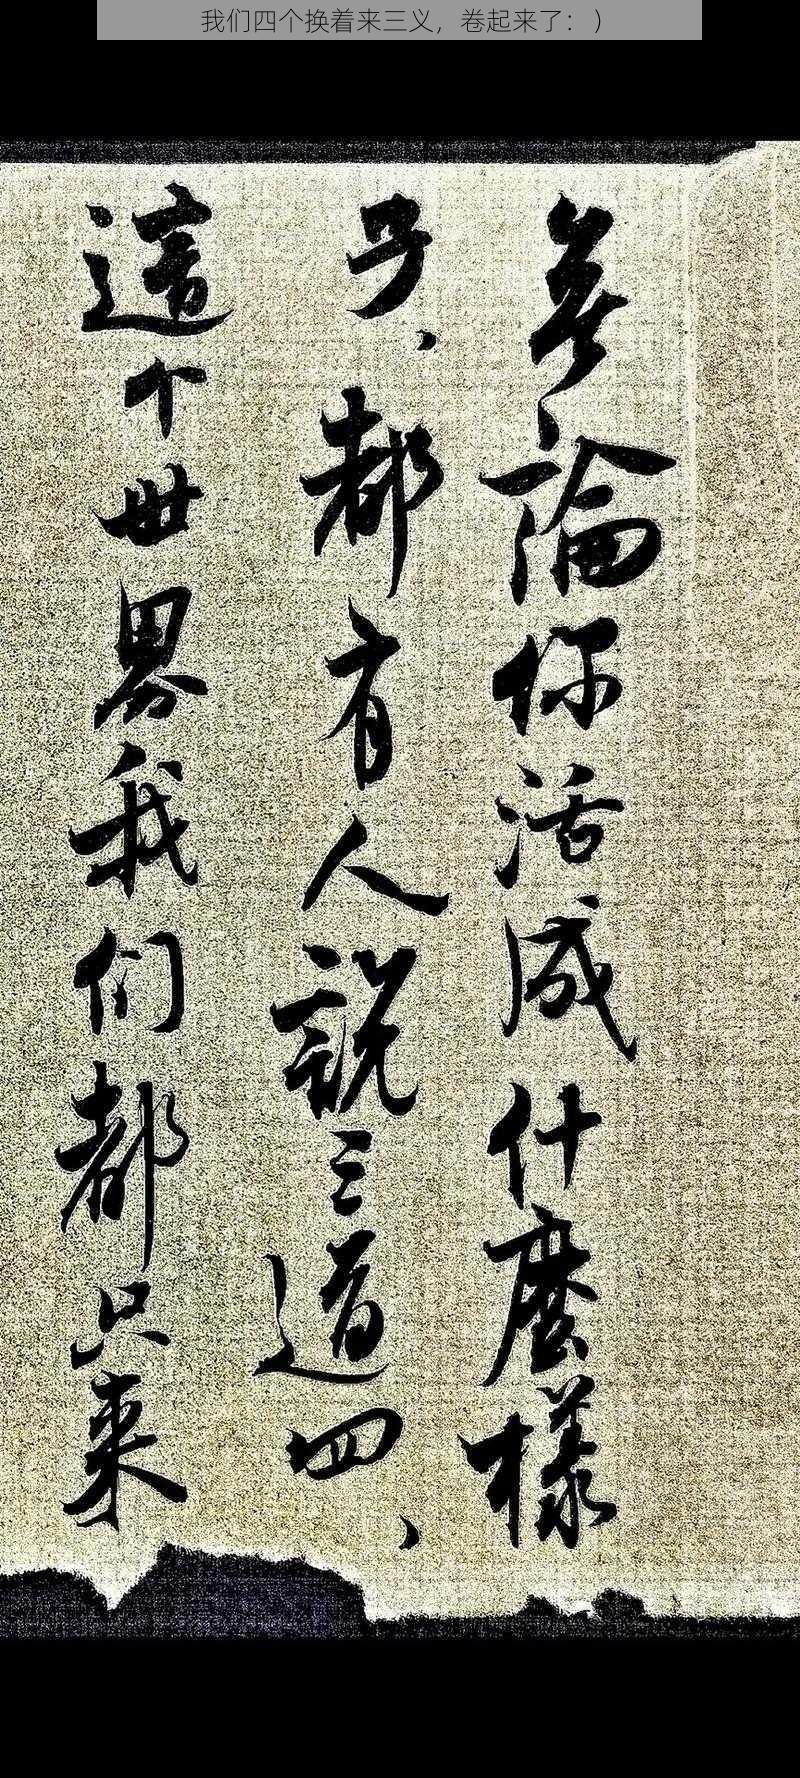 我们四个换着来三义，卷起来了：）
无論你活成什麼樣
子、都有人説三道四、
這个世界我们都只来